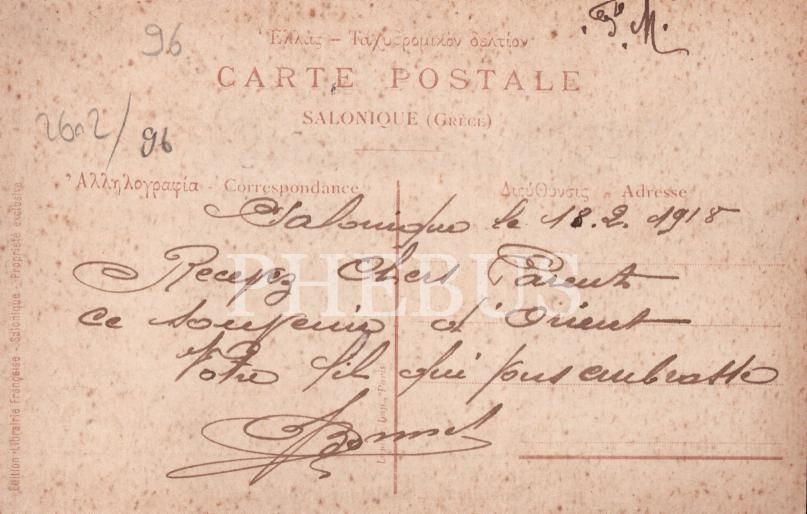 F. M.
96
Ἑλλὰς – Ταχυδρομικὸν δελτίον
CARTE POSTALE
SALONIQUE (GRÈCE)
2602/96
Ἀλληλογραφία - Correspondance
Διεύθυνσις - Adresse
Salonique le 18.2.1918
Recevez Chers Parents
ce souvenir d'Orient
Votre fils qui vous embrasse
Bonnet
PHEBUS
Edition Librairie Française - Salonique - Propriété exclusive